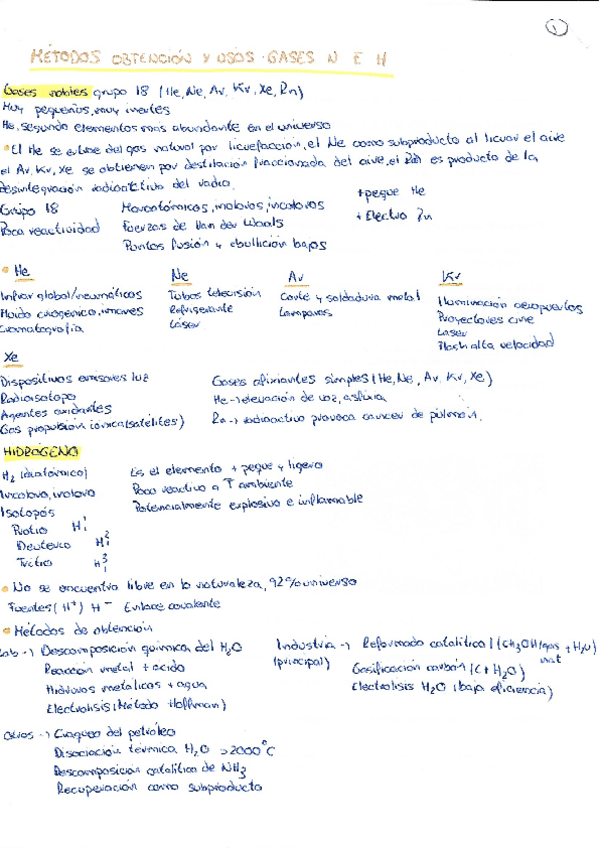 1
MÉTODOS OBTENCIÓN Y USOS GASES N E H
Gases nobles grupo 18 (He, Ne, Ar, Kr, Xe, Rn)
Muy pequeños, muy inertes
He, segundo elementos más abundante en el universo
El He se extrae del gas natural por licuefacción, el Ne como subproducto al licuar el aire
el Ar, Kr, Xe se obtienen por destilación fraccionada del aire, el Rn es producto de la
desintegración radioactiva del radio.
Grupo 18
Poca reactividad
Monoatómicos, inoloros, incoloros
Fuerzas de Van der Waals
Puntos fusión y ebullición bajos
+peque He
+Electro Rn
He
Inflar globo/neumáticos
Fluido criogénico, imanes
Cromatografía
Ne
Tubos televisión
Refrigerante
Láser
Ar
Corte y soldadura metal
Lámparas
Kr
Iluminación aeropuertos
Proyectores cine
Laser
Flash alta velocidad
Xe
Dispositivos emisores luz
Radioisotopo
Agentes oxidantes
Gas propulsión iónica (satélites)
Gases asfixiantes simples (He, Ne, Ar, Kr, Xe)
He → elevación de voz, asfixia
Rn → radioactivo provoca cancer de pulmón.
HIDRÓGENO
H2 (diatómico)
Incoloro, inoloro
Isotopós
Protio H 1 1
Deuterio H 2 1
Tritio H 3 1
Es el elemento + peque y ligero
Poco reactivo a T ambiente
Potencialmente explosivo e inflamable
No se encuentra libre en la naturaleza, 92% universo
Fuentes (H+) H- Enlace covalente
Métodos de obtención
Lab → Descomposición química del H2O
Reacción metal + acido
Hidruros metálicos + agua
Electrolisis (Método Hoffman)
Industria → Reformado catalítico (CH3OH/gas nat + H2O)
(principal)
Gasificación carbón (C + H2O)
Electrolisis H2O (baja eficiencia)
Otros → Craqueo del petróleo
Disociación térmica H2O >2000°C
Descomposición catalítica de NH3
Recuperación como subproducto